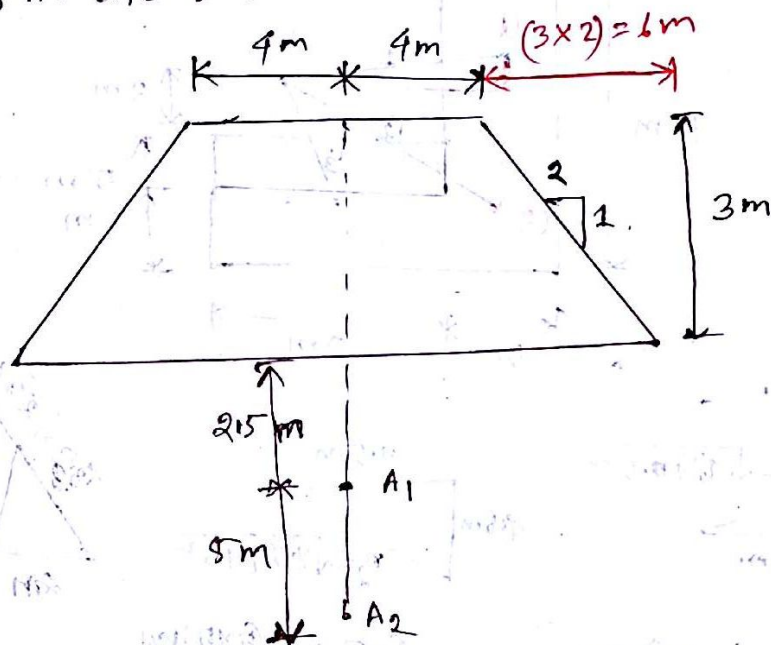 4m 4m (3×2) = 6m
2
1.
3m
2.5 m
A1
5m
A2